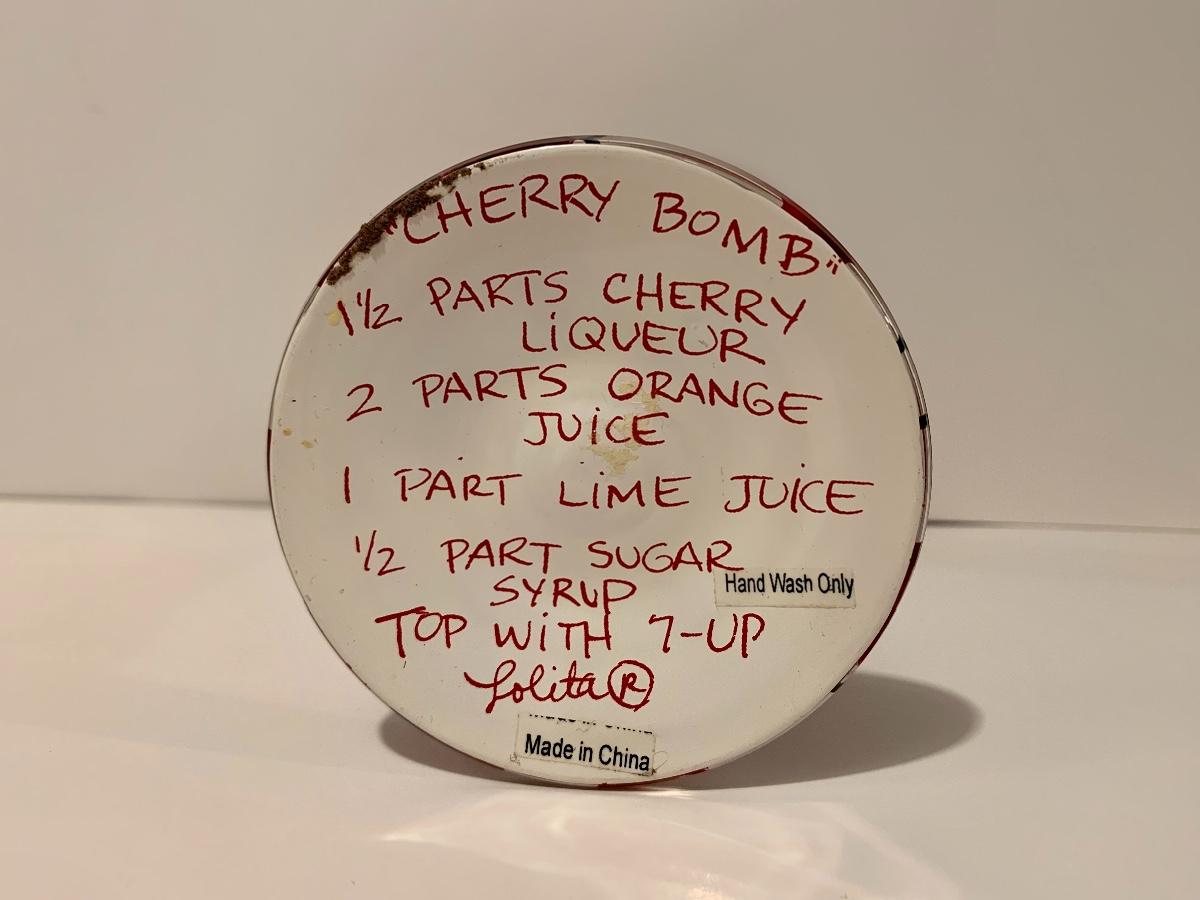 "CHERRY BOMB"
1½ PARTS CHERRY
LIQUEUR
2 PARTS ORANGE
JUICE
1 PART LIME JUICE
½ PART SUGAR
SYRUP
Hand Wash Only
TOP WITH 7-UP
Lolita®
Made in China
Made in China